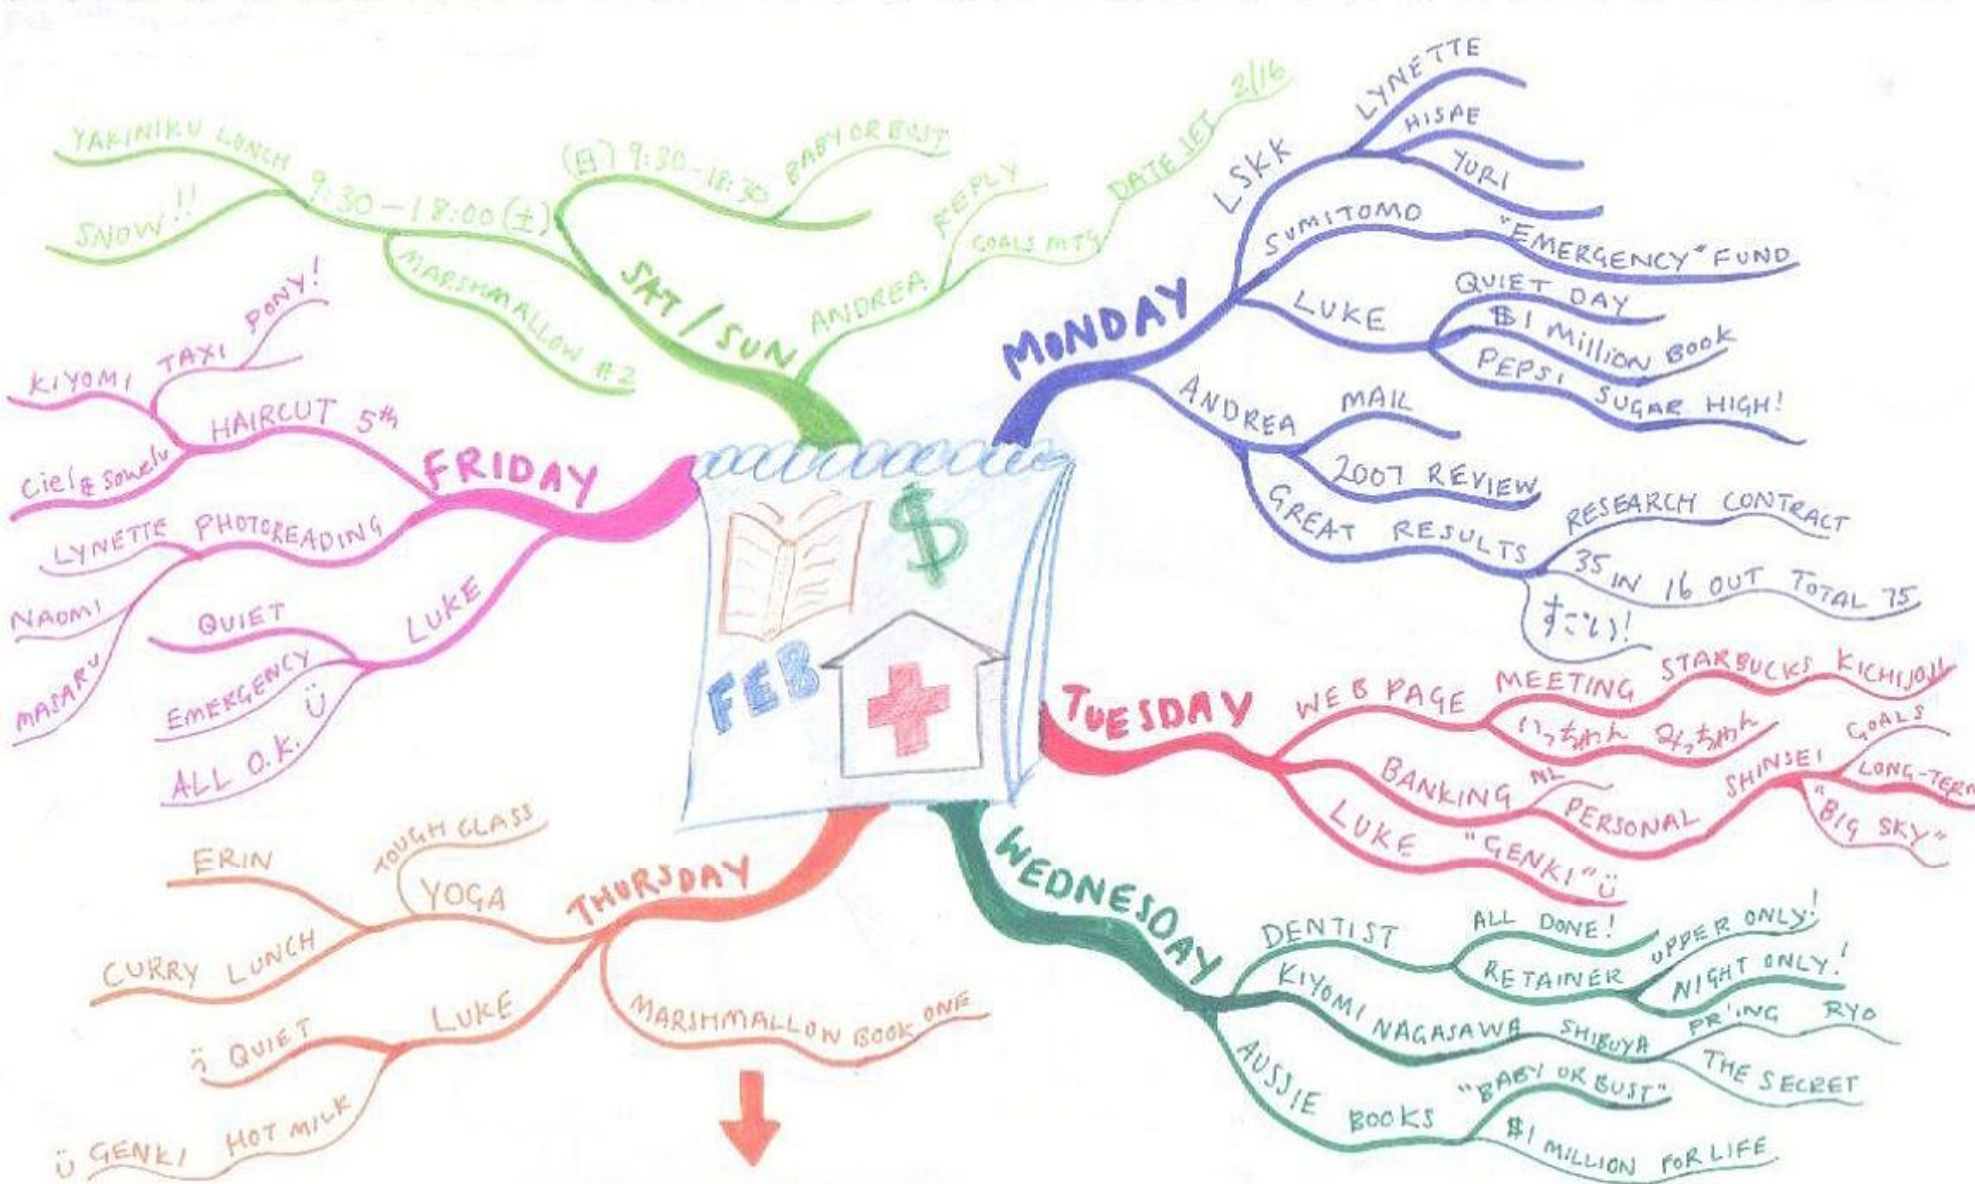 FEB
$
MONDAY
LSKK
LYNETTE
HISAE
YURI
SUMITOMO
"EMERGENCY" FUND
LUKE
QUIET DAY
$1 Million BOOK
PEPSI SUGAR HIGH!
ANDREA
MAIL
2007 REVIEW
GREAT RESULTS
RESEARCH CONTRACT
35 IN 16 OUT TOTAL 75
すごい!
TUESDAY
WEB PAGE
MEETING
STARBUCKS KICHIJOJI
いっちゃん みっちゃん
BANKING
NL
PERSONAL
SHINSEI
GOALS
LONG-TERM
"BIG SKY"
LUKE
"GENKI" ü
WEDNESDAY
DENTIST
ALL DONE!
RETAINER
UPPER ONLY!
NIGHT ONLY!
KIYOMI NAGASAWA
SHIBUYA
PR'ING
RYO
THE SECRET
AUSSIE BOOKS
"BABY OR BUST"
$1 MILLION FOR LIFE
THURSDAY
YOGA
TOUGH CLASS
ERIN
CURRY LUNCH
LUKE
QUIET
HOT MILK
ü GENKI
MARSHMALLOW BOOK ONE
FRIDAY
HAIRCUT 5th
KIYOMI
TAXI
PONY!
Ciel & Sowelu
PHOTOREADING
LYNETTE
NAOMI
MASARU
LUKE
QUIET
EMERGENCY
ALL O.K. ü
SAT/SUN
9:30-18:00 (土)
YAKINIKU LUNCH
SNOW!!
MARSHMALLOW #2
(日) 9:30-18:30
BABY OR BUST
ANDREA
REPLY
GOALS MTG
DATE SET 2/16